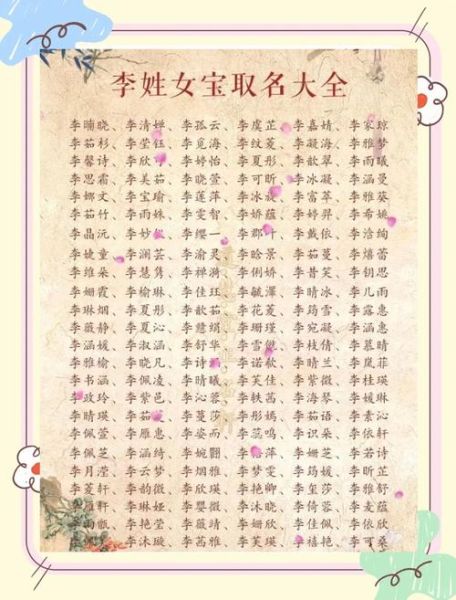 李姓女宝取名大全
李晡晓、李清婵、李孤云、李虞芷、李嘉婧、李家琼
李茹杉、李莹钰、李觅海、李纹菱、李凝海、李雅梦
李馨诗、李欣、李婷怡、李夏彤、李歆翠、李雨曦
李思霜、李美茹、李晓萱、李可昕、李冰凝、李涵曼
李娜文、李宝瑜、李莲萍、李冰旋、李富萃、李雅葵
李茹竹、李雨姝、李雯智、李娇蕴、李婷昇、李希娆
李晶沅、李妙、李缨一、李郡叶、李戴依、李浛绚
李婕童、李澜芸、李渝灵、李晗景、李茹蔓、李熺蕾
李维朵、李慧隽、李禅漪、李俐娇、李昔笑、李钥思
李姗霞、李榆琳、李佳珏、李毓潭、李晴冰、李几雨
李琳烟、李夏彤、李歆茹、李花菱、李筠雪、李露惠
李薇静、李夏沁、李慧娟、李珊瑾、李宛凝、李涵惠
李涵媛、李淑涵、李舒华、李雪、李枝倩、李慕晴
李雅榆、李晓凡、李诗、李诺歆、李晴兰、李岚菲
李书涵、李佩凌、李晴曦、李芙佳、李紫微、李桂瑛
李政玲、李紫邑、李沁蓉、李轶茜、李海琴、李媛琳
李晴瑛、李茹、李蔓莎、李彤嫣、李茹语、李素沁
李佩萱、李雁惠、李姿而、李蕊鸣、李识朵、李依轩
李佩芝、李涵绮、李婉翾、李萍、李姗芝、李若诗
李月滢、李云梦、李烟雅、李梦雯、李筠媛、李昕芷
李菱轩、李韵微、李欣瑛、李艳卿、李玺莎、李雅舒
李轩、李琳娅、李婴微、李沐晓、李倚蓉、李麦蕴
李、李艳莹、李薇靖、李姗欣、李佳佩、李依欣
李、李沐璇、李茜雅、李芙瑛、李禧艳、李可桑